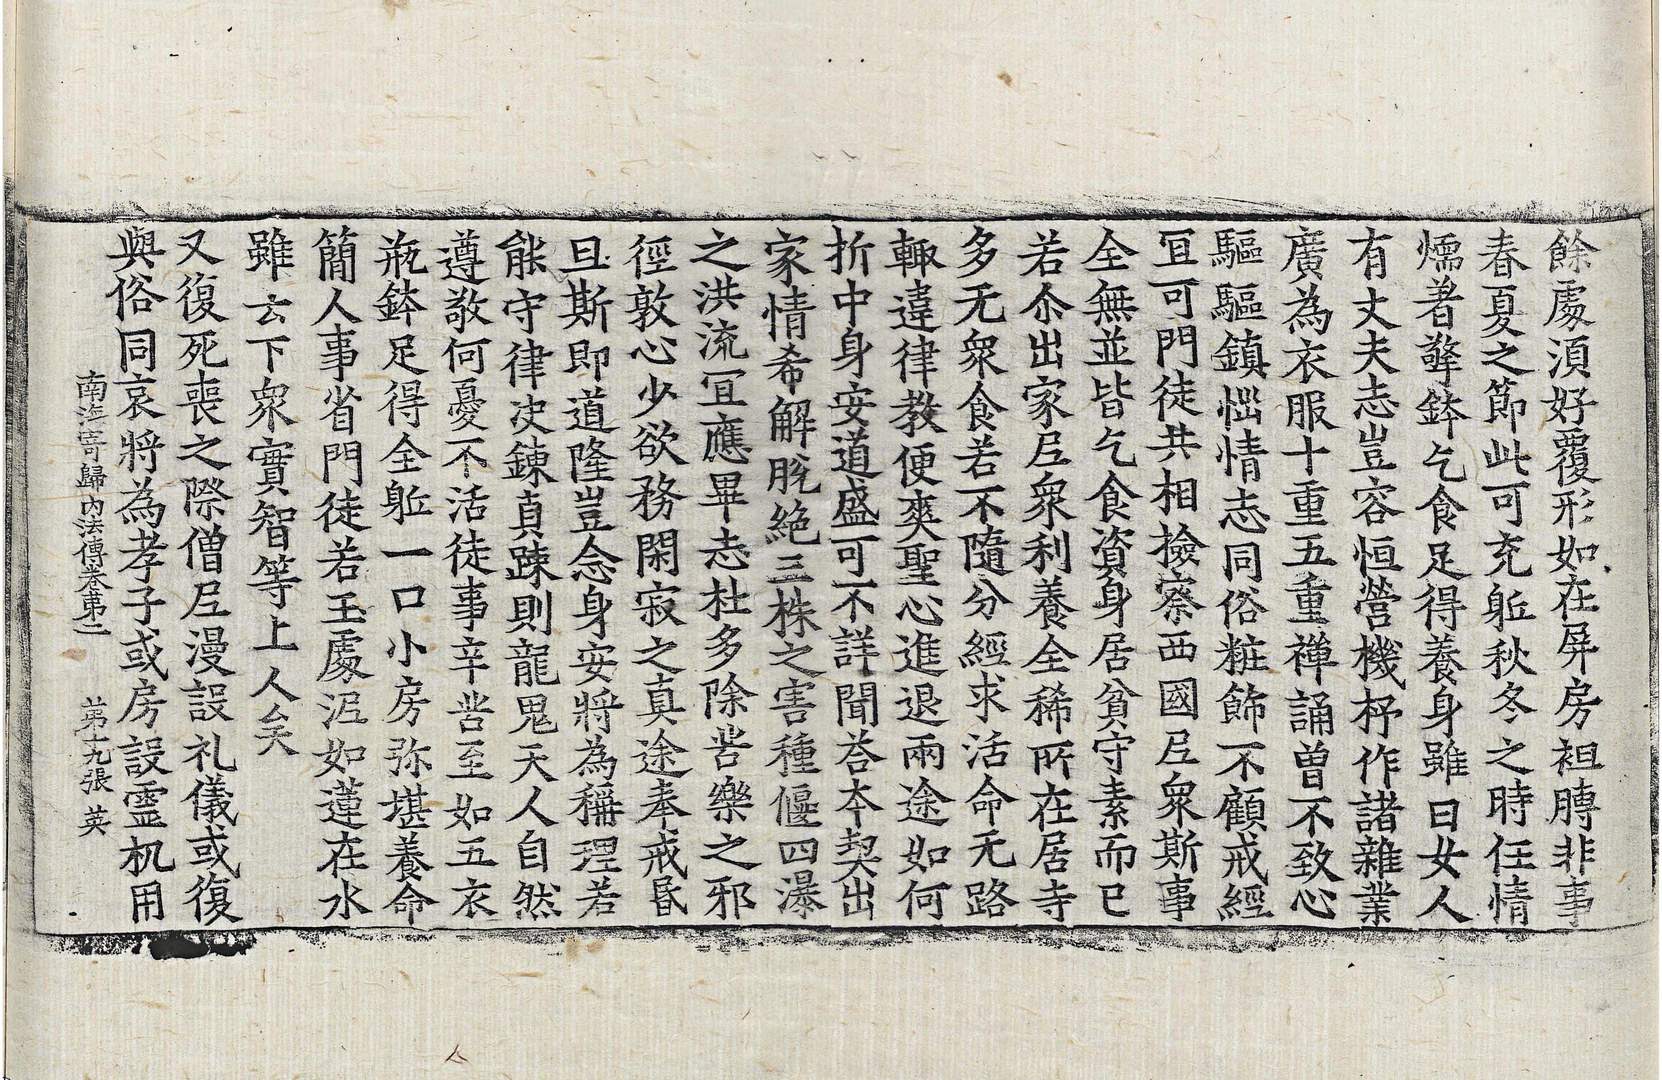 餘處湏好覆形如在屏房袒膊非事
春夏之節此可充躯秋冬之時任情
煗著擎鉢乞食足得養身雖曰女人
有丈夫志豈容恒營機杼作諸雜業
廣為衣服十重五重禅誦曽不致心
驅驅鎮惱情志同俗粧飾不顧戒經
冝可門徒共相撿察西國尼衆斯事
全無並皆乞食資身居貧守素而已
若尒出家尼衆利養全稀所在居寺
多无衆食若不隨分經求活命无路
輙違律教便爽聖心進退兩途如何
折中身安道盛可不詳聞荅夲契出
家情希解脫絶三株之害種偃四瀑
之洪流冝應畢志杜多除苦樂之邪
徑敦心少欲務閑寂之真途奉戒昬
旦斯即道隆豈念身安將為稱理若
能守律决鍊真踈則龍鬼天人自然
遵敬何憂不活徒事辛苦至如五衣
瓶鉢足得全躯一口小房弥堪養命
簡人事省門徒若玉處泥如蓮在水
雖云下衆實智等上人矣
又復死喪之際僧尼漫設礼儀或復
與俗同哀將為孝子或房設靈机用
南海寄歸内法傳卷苐二 苐十九張 英